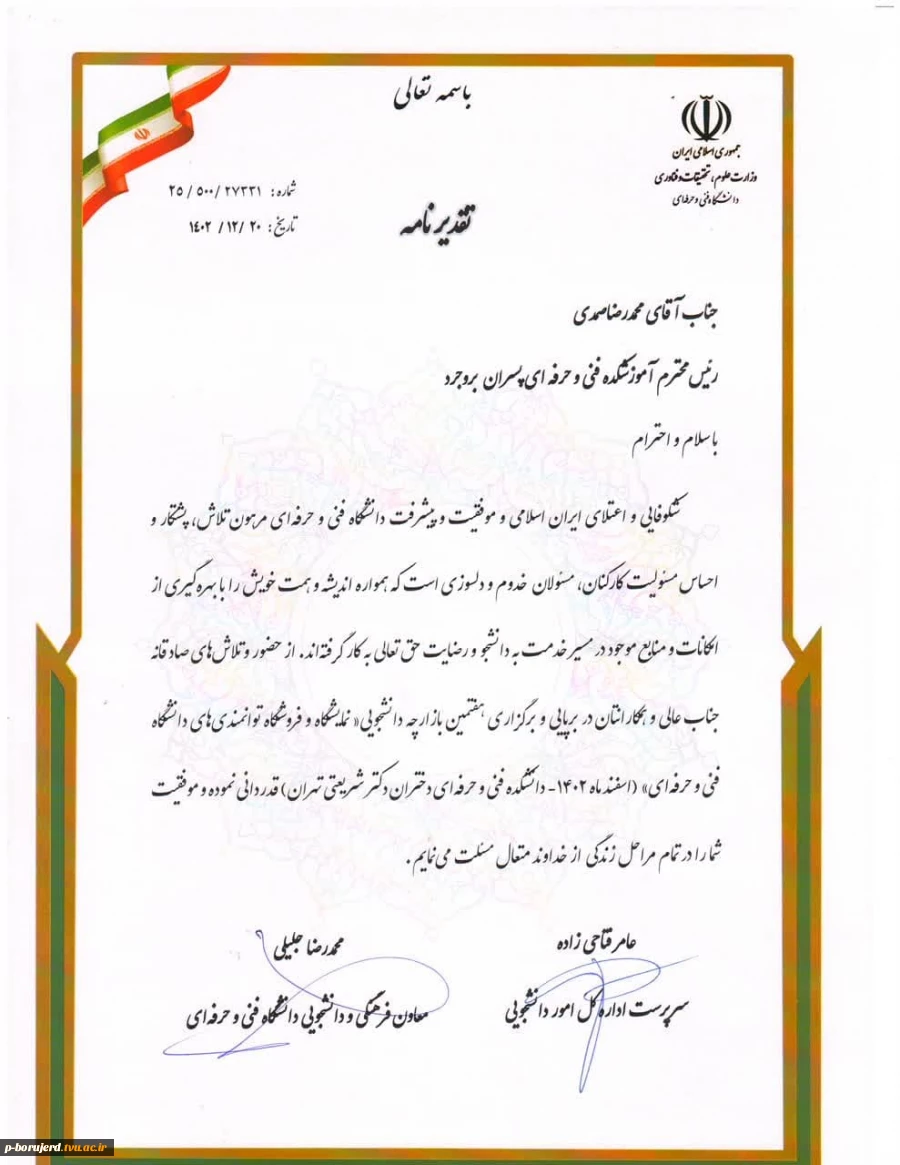 باسمه تعالی
جمهوری اسلامی ایران
وزارت علوم، تحقیقات و فناوری
دانشگاه فنی و حرفه‌ای
شماره: ۲۵/۵۰۰/۲۷۳۳۱
تاریخ: ۱۴۰۲/۱۲/۲۰
تقدیرنامه
جناب آقای محمدرضا صمدی
رئیس محترم آموزشکده فنی و حرفه ای پسران بروجرد
با سلام و احترام
شکوفایی و اعتلای ایران اسلامی و موفقیت و پیشرفت دانشگاه فنی و حرفه‌ای مرهون تلاش، پشتکار و
احساس مسئولیت کارکنان، مسئولان خدوم و دلسوزی است که همواره اندیشه و همت خویش را با بهره گیری از
امکانات و منابع موجود در مسیر خدمت به دانشجو و رضایت حق تعالی به کار گرفته‌اند. از حضور و تلاش‌های صادقانه
جناب عالی و همکارانتان در برپایی و برگزاری هفتمین بازارچه دانشجویی« نمایشگاه و فروشگاه توانمندی‌های دانشگاه
فنی و حرفه‌ای» (اسفند ماه ۱۴۰۲- دانشکده فنی و حرفه‌ای دختران دکتر شریعتی تهران) قدردانی نموده و موفقیت
شما را در تمام مراحل زندگی از خداوند متعال مسئلت می‌نمایم.
عامر فتاحی زاده
سرپرست اداره کل امور دانشجویی
محمدرضا جلیلی
معاون فرهنگی و دانشجویی دانشگاه فنی و حرفه‌ای
p-borujerd.tvu.ac.ir